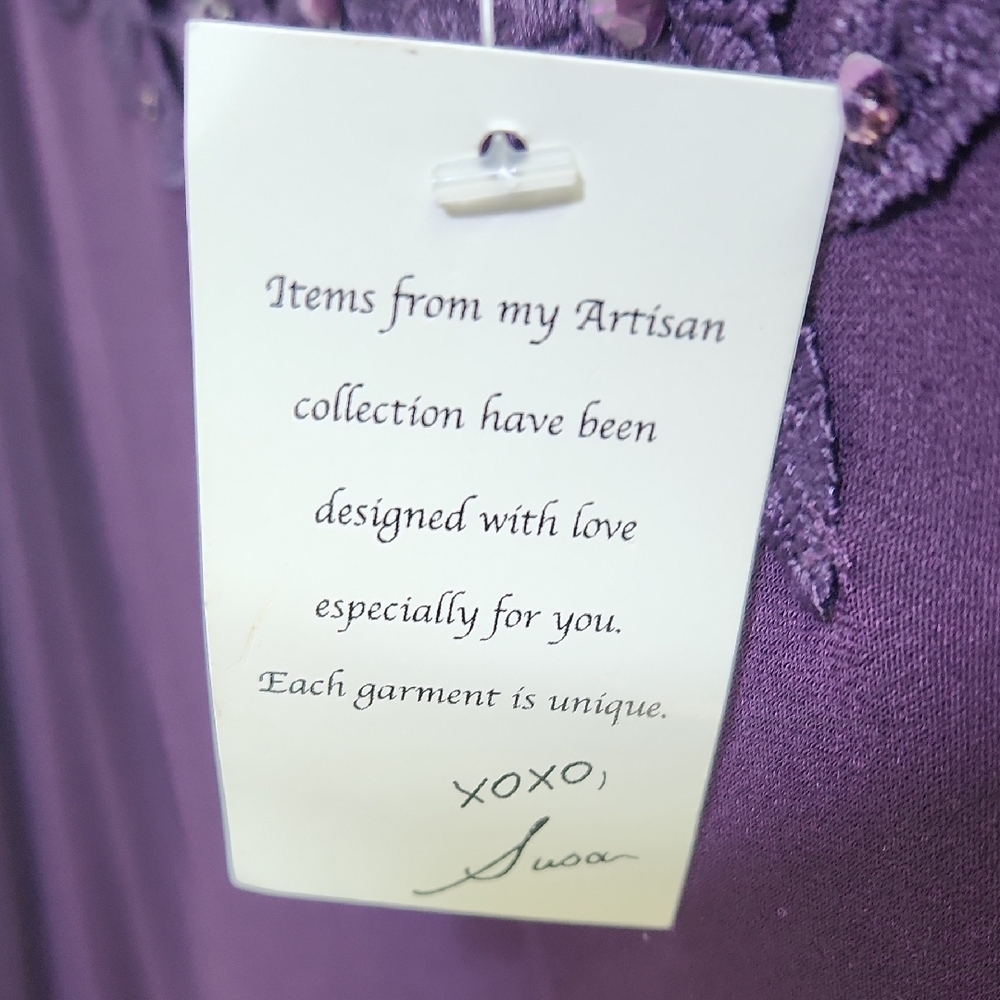 Items from my Artisan
collection have been
designed with love
especially for you.
Each garment is unique.
XOXO,
Susan